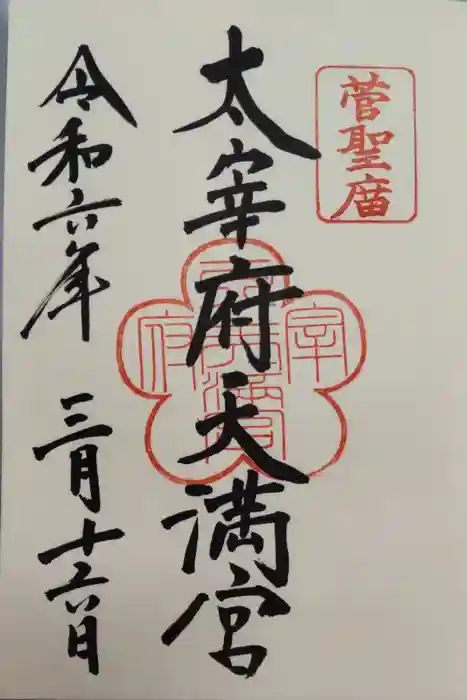 菅聖庿
太宰府天満宮
令和六年 三月十六日
宰
府